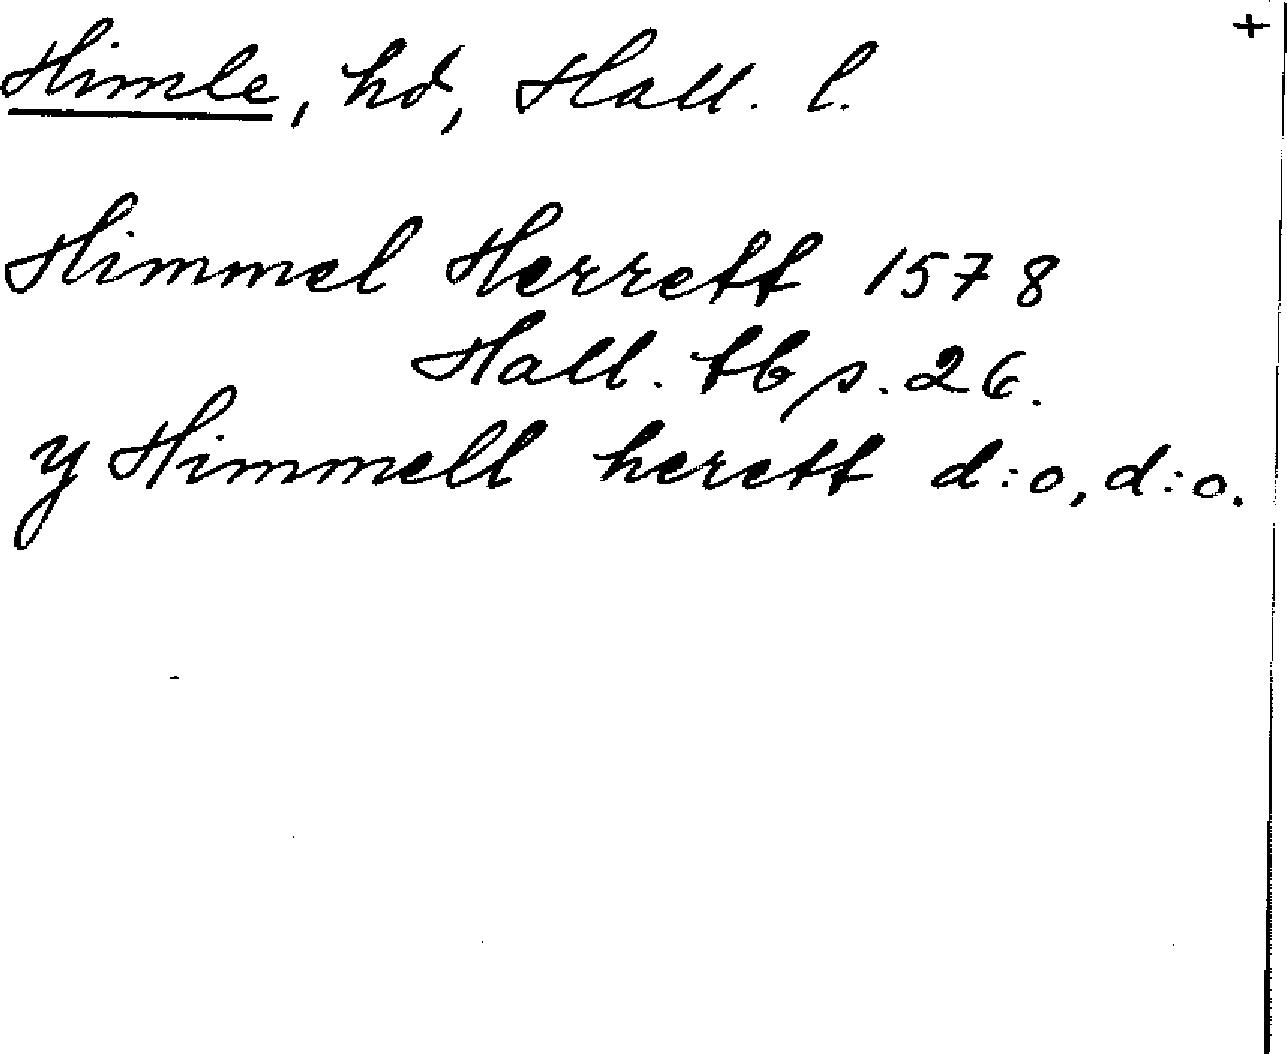 +
Himle, hd, Hall. l.
Himmel Herrett 1578
Hall. tb s. 26.
y Himmell herett d:o, d:o.